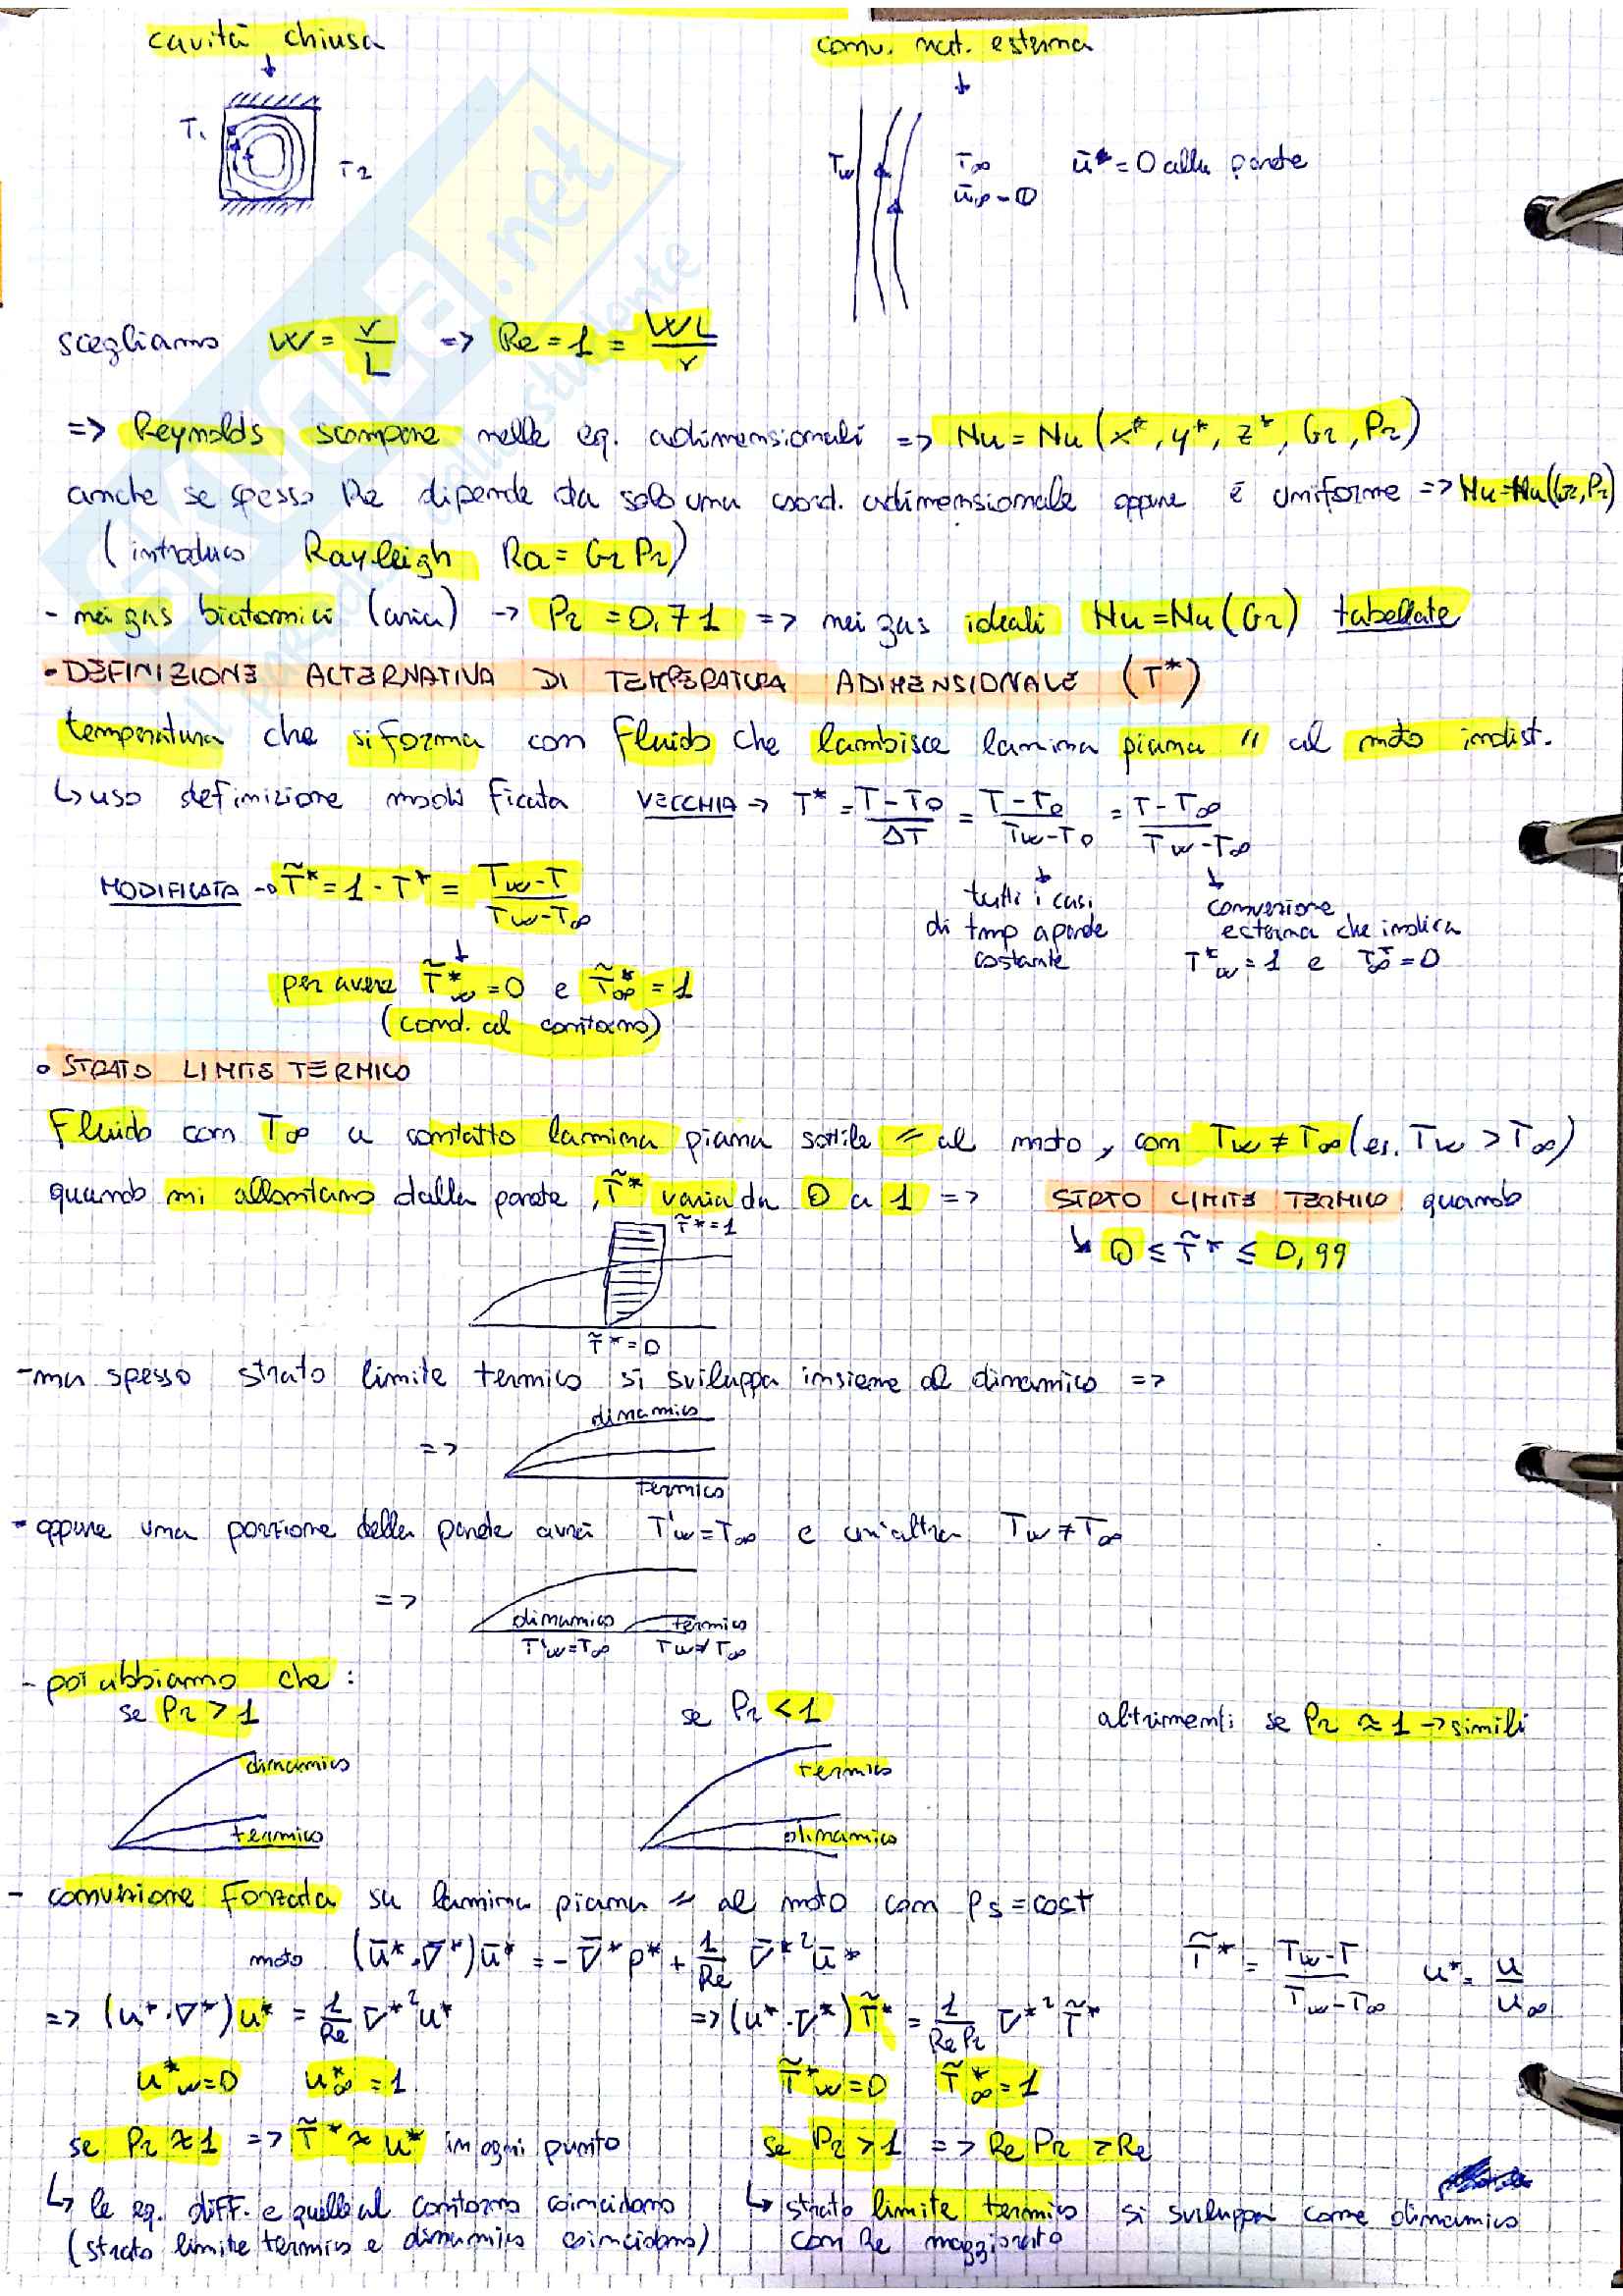 cavità chiusa
conv. nat. esterna
T₁
T₂
Tw
T∞
ū∞=0
ū*=0 alla parete
scegliamo W = ν/L => Re = 1 = WL/ν
=> Reynolds scompare nelle eq. adimensionali => Nu = Nu (x*, y*, z*, Gr, Pr)
anche se spesso Re dipende da solo una coord. adimensionale oppure è uniforme => Nu=Nu(Gr,Pr)
(introduco Rayleigh Ra = Gr Pr)
- nei gas biatomici (aria) -> Pr = 0,71 => nei gas ideali Nu=Nu(Gr) tabellate
• DEFINIZIONE ALTERNATIVA DI TEMPERATURA ADIMENSIONALE (T*)
temperatura che si forma con fluido che lambisce lamina piana // al moto indist.
↳ uso definizione modificata VECCHIA -> T* = (T-T₀)/ΔT = (T-T₀)/(Tw-T₀) = (T-T∞)/(Tw-T∞)
MODIFICATA -> T̃* = 1 - T* = (Tw-T)/(Tw-T∞)
tutti i casi di tmp a parete costante
convezione esterna che implica T*w = 1 e T*∞ = 0
per avere T̃*w = 0 e T̃*∞ = 1
(cond. al contorno)
• STRATO LIMITE TERMICO
Fluido con T∞ a contatto lamina piana sottile // al moto, con Tw ≠ T∞ (es. Tw > T∞)
quando mi allontano dalla parete, T̃* varia da 0 a 1 => STRTO LIMITE TERMICO quando
↳ 0 ≤ T̃* ≤ 0,99
T̃*=1
T̃*=0
- ma spesso strato limite termico si sviluppa insieme al dinamico =>
=> dinamico
termico
- oppure una porzione della parete avrà T'w=T∞ e un'altra Tw≠T∞
=> dinamico termico
T'w=T∞ Tw≠T∞
- poi abbiamo che:
se Pr > 1 se Pr < 1 altrimenti se Pr ≈ 1 -> simili
dinamico termico
termico dinamico
- convezione forzata su lamina piana // al moto con ps = cost
moto (ū*·∇̄*)ū* = -∇̄*p* + 1/Re ∇̄*²ū* T̃* = (Tw-T)/(Tw-T∞) u* = u/u∞
=> (u*·∇*)u* = 1/Re ∇*²u* => (u*·∇*)T̃* = 1/(Re Pr) ∇*²T̃*
u*w=0 u*∞=1 T̃*w=0 T̃*∞=1
se Pr ≈ 1 => T̃* ≈ u* in ogni punto se Pr > 1 => Re Pr > Re
↳ le eq. diff. e quelle al contorno coincidono
(strato limite termico e dinamico coincidono)
↳ strato limite termico si sviluppa come dinamico
con Re maggiorato